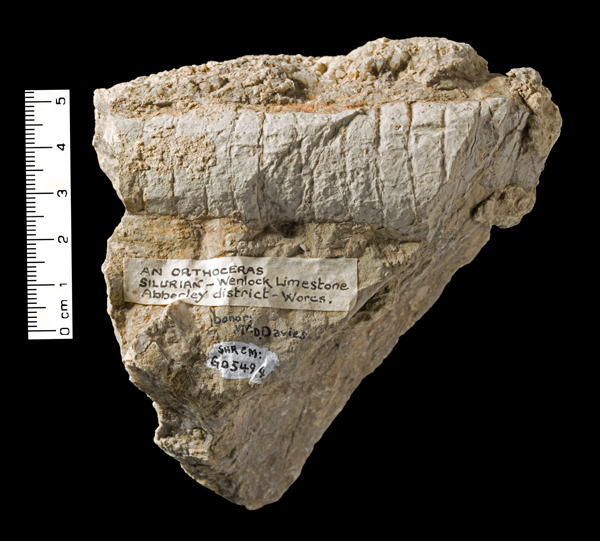 5
4
3
2
1
0 cm
AN ORTHOCERAS
SILURIAN - Wenlock Limestone
Abberley district - Worcs.
Donor:
Davies.
SHRCM: